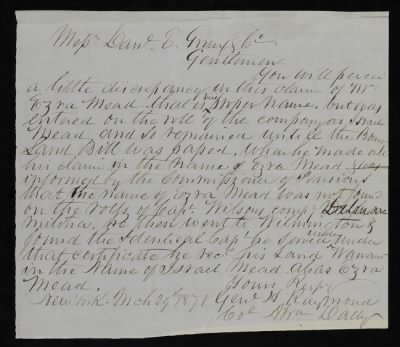 Messrs Danl. E.
Gentlemen.
You will perceive
a little discrepancy in this claim of Mr
Ezra Mead. that is his proper name. but was
entered on the roll of the company as Israel
Mead, and so remained until the Bounty
Land Bill was passed, when he made out
his claim in the name of Ezra Mead
informed by the Commissioner of Pensions
that the name of Ezra Mead was not found
on the Rolls of Capt. Wilsons comp Delaware
Militia, he then went to Wilmington &
found the Identical Capt. he served under
that certificate he recd his Land Warrant
in the Name of Israel Mead alias Ezra
Mead.
Yours Respy
Genl. H. Raymond
New York Mch 29th 1871
Col. Wm Dally